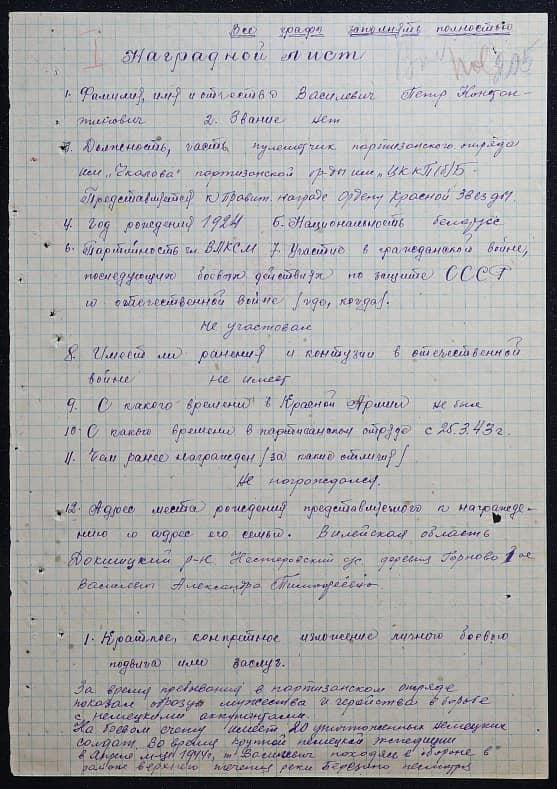 Все графы заполнять полностью
Наградной лист
1. Фамилия, имя и отчество Василевич Петр Констан-
тинович 2. Звание нет
3. Должность, часть пулеметчик партизанского отряда
им „Чкалова" партизанской бр-ды им „ЦККП(б)Б-
Представляется к Правит. награде Ордену Красной Звезды.
4. Год рождения 1924 5. Национальность белорусс
6. Партийность чл. ВЛКСМ 7. Участие в гражданской войне,
последующих боевых действиях по защите СССР
и отечественной войне (где, когда).
Не участвовал
8. Имеет ли ранения и контузии в отечественной
войне не имеет
9. С какого времени в Красной Армии не был
10. С какого времени в партизанском отряде с 25.3.43 г.
11. Чем ранее награжден (за какие отличия)
Не награждался.
12. Адрес места рождения представляемого к награжде-
нию и адрес его семьи. Вилейская область
Докшицкий р-н Нестеровский с/с. деревня
Александра Тимофеевна
1. Краткое, конкретное изложение личного боевого
подвига или заслуг.
За время пребывания в партизанском отряде
показал образцы мужества и геройства в борьбе
с немецкими оккупантами.
На боевом счету имеет 20 уничтоженных немецких
солдат. Во время крупной немецкой экспедиции
в Апреле м-це 1944 г. т. Василевич находясь в обороне в
районе верхнего течения реки Березина